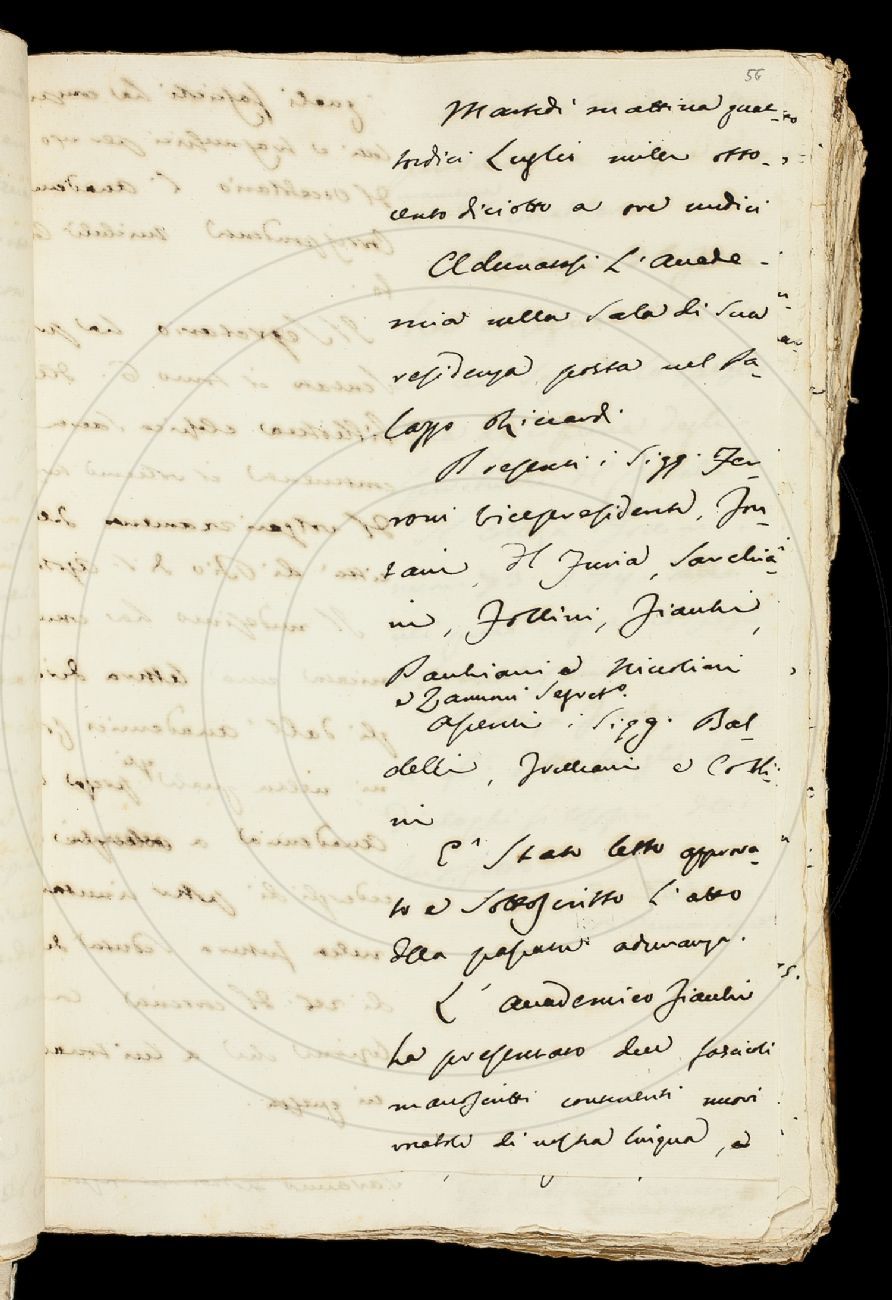 56
Martedì mattina quat-
tordici Luglio mille otto-
cento diciotto a ore undici
Adunatasi L'Accade-
mia nella Sala di Sua
residenza posta nel Pa-
lazzo Riccardi
Presenti i Sigg. Fer-
roni Vicepresidente, Fon-
tani, Del Furia, Sarchia-
ni, Follini, Fiacchi,
Bauchiani e Niccolini
e Zannoni Segret.o
Assenti i Sigg. Bal-
delli, Frullani e Colli-
ni
E' Stato letto approva-
to e Sottoscritto L'atto
della passata adunanza.
L'Accademico Fiacchi
ha presentato due fascicoli
manoscritti contenenti nuovi
vocaboli di nostra lingua, e